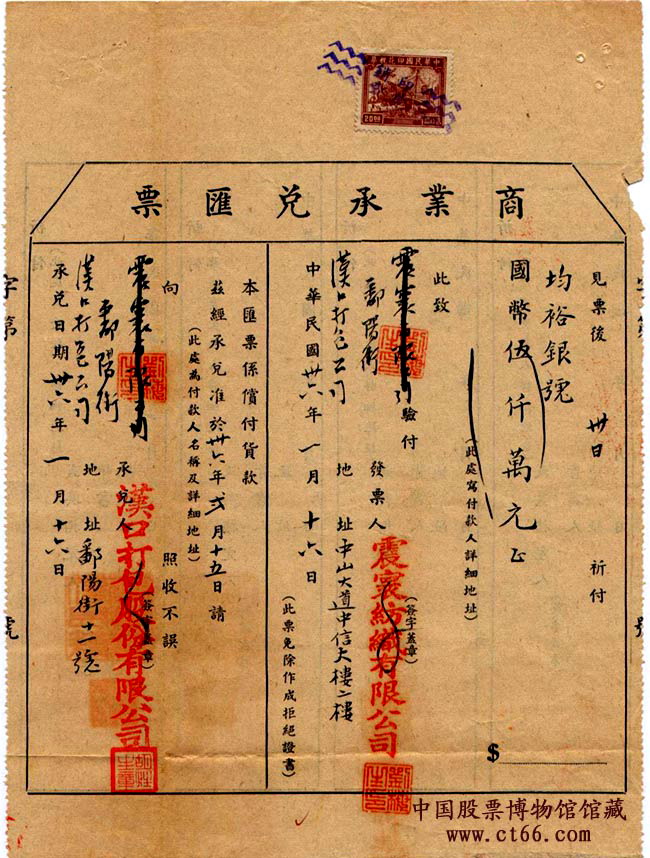 中華民國印花税票
20圓
商業承兌匯票
字第
號
見票後 卅日 祈付
均裕銀號
國幣伍仟萬元正
$
(此處寫付款人詳細地址)
此致
震寰有限公司 驗付
鄱陽街
漢口打包公司
中華民國卅六年一月十六日
發票人
震寰紡織有限公司
(簽字蓋章)
地址 中山大道中信大樓二樓
(此票免除作成拒絕證書)
本匯票係償付貨款
茲經承兌准於卅六年弍月十五日請
照收不誤
(此處為付款人名稱及詳細地址)
向
震寰有限公司
鄱陽街
漢口打包公司
承兌人
漢口打包股份有限公司
(簽字蓋章)
地址 鄱陽街十一號
承兌日期卅六年一月十六日
字第
號
中国股票博物馆馆藏
www.ct66.com